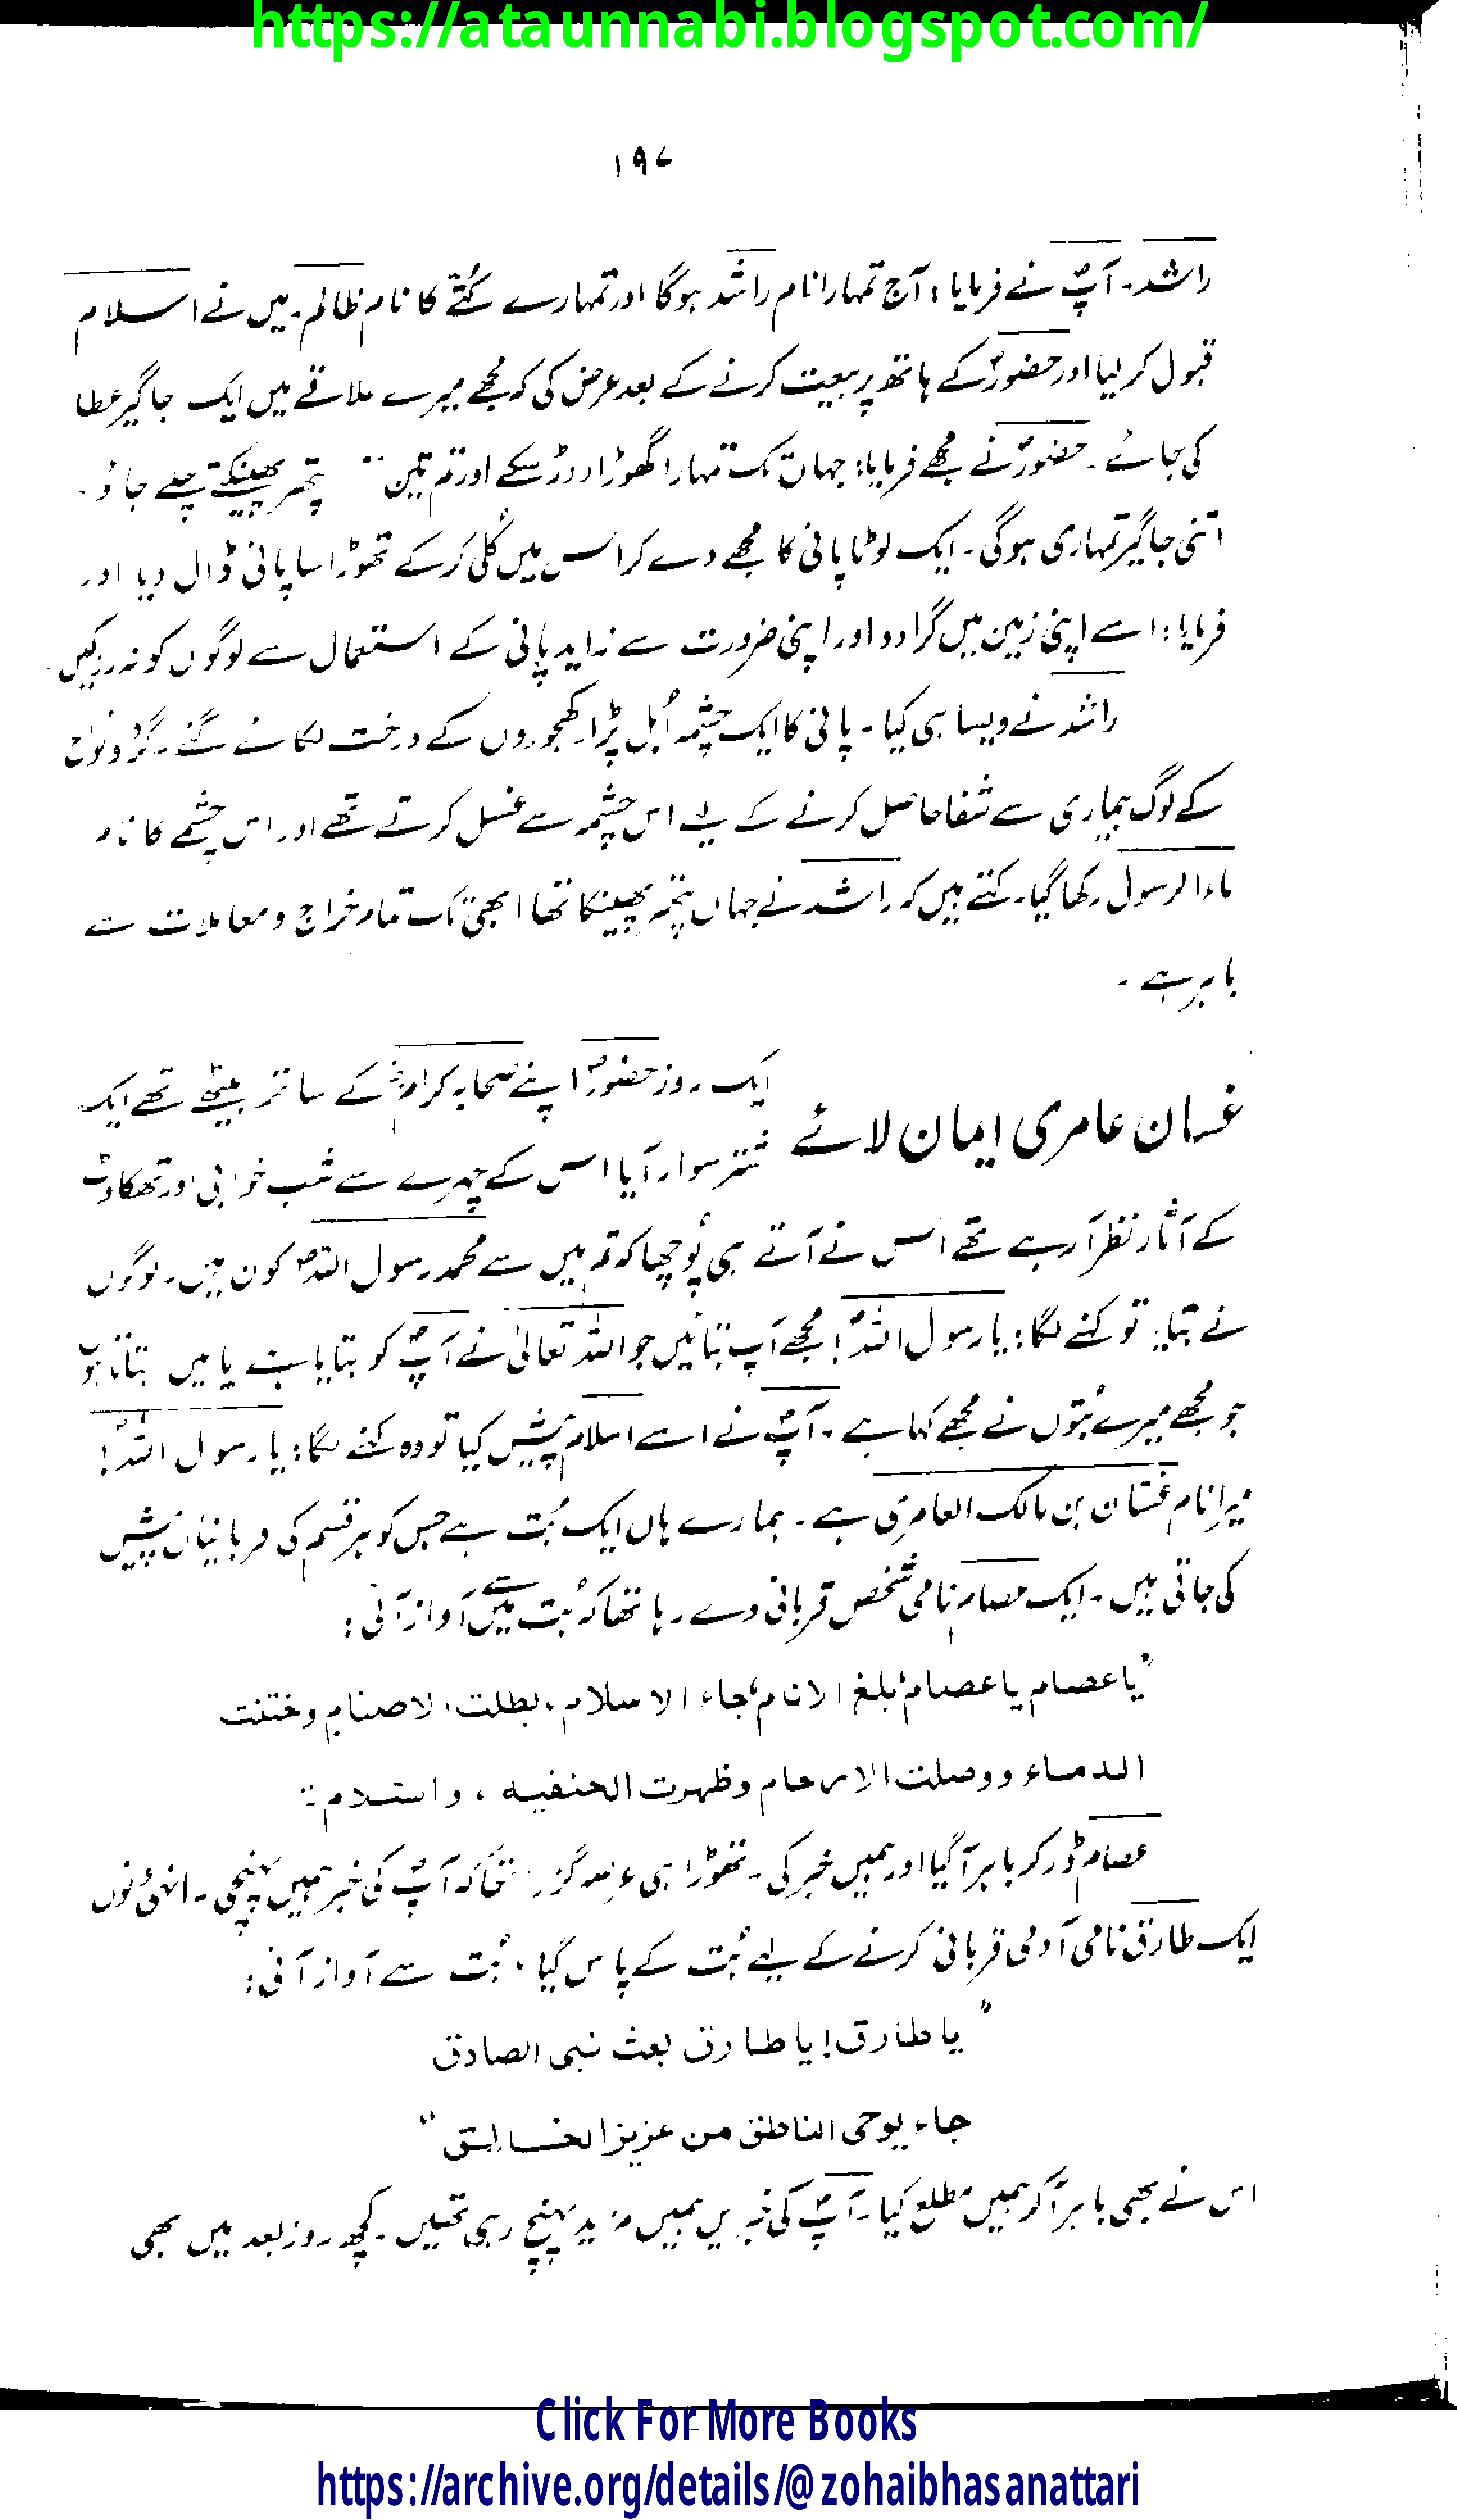 https://ataunnabi.blogspot.com/
۱۹۷
راشد۔ آپؐ نے فرمایا: آج تمہارا نام راشد ہوگا اور تمہارے کُتّے کا نام ظالم۔ میں نے اسلام
قبول کر لیا اور حضورؐ کے ہاتھ پر بیعت کرنے کے بعد عرض کی کہ مجھے میرے علاقے میں ایک جاگیر عطا
کی جائے۔ حضورؐ نے مجھے فرمایا: جہاں تک تمہارا گھوڑا دوڑ سکے اور تم تین پتھر پھینکتے چلے جاؤ۔
اتنی جاگیر تمہاری ہوگی۔ ایک لوٹا پانی کا مجھے دے کر اس میں کُلّی کر کے تھوڑا سا پانی ڈال دیا اور
فرمایا: اسے اپنی زمین میں گرا دو اور اپنی ضرورت سے زاید پانی کے استعمال سے لوگوں کو نہ روکیں۔
راشد نے ویسا ہی کیا۔ پانی کا ایک چشمہ اُبل پڑا۔ کھجوروں کے درخت لگائے گئے۔ گرد و نواح
کے لوگ بیماری سے شفا حاصل کرنے کے لیے اس چشمہ سے غسل کرتے تھے اور اس چشمے کا نام
ماء الرسول رکھا گیا۔ کہتے ہیں کہ راشد نے جہاں پتھر پھینکا تھا ابھی تک تمام خراج و معاملات سے
باہر ہے۔
غسان عامری ایمان لائے
ایک روز حضورؐ اپنے صحابہ کرامؓ کے ساتھ بیٹھے تھے ایک
شتر سوار آیا اس کے چہرے سے شب خوابی اور تھکاوٹ
کے آثار نظر آ رہے تھے اس نے آتے ہی پُوچھا کہ تم میں سے محمد رسول اللہؐ کون ہیں۔ لوگوں
نے بتایا تو کہنے لگا: یا رسول اللہؐ! مجھے آپ بتائیں جو اللہ تعالیٰ نے آپؐ کو بتایا ہے یا میں بتاتا ہوں
جو مجھے میرے بُتوں نے مجھے کہا ہے۔ آپؐ نے اسے اسلام پیش کیا تو وہ کہنے لگا: یا رسول اللہؐ!
میرا نام غسّان بن مالک العامری ہے۔ ہمارے ہاں ایک بُت ہے جس کو ہر قسم کی قربانیاں پیش
کی جاتی ہیں۔ ایک عصام نامی شخص قربانی دے رہا تھا کہ بُت میں سے آواز آئی:
"یا عصام یا عصام بلغ الانام، جاء الاسلام، بطلت الاصنام وختنت
الدماء ووصلت الارحام وظہرت الحنفیہ، والسلام"
عصام ڈر کر باہر آ گیا اور ہمیں خبر کی۔ تھوڑا ہی عرصہ گزرا تھا کہ آپؐ کی خبر ہمیں پہنچی۔ انہی دنوں
ایک طارق نامی آدمی قربانی کرنے کے لیے بُت کے پاس گیا، بُت سے آواز آئی:
"یا طارق! یا طارق بعث نبی الصادق
جاء بوحی الناطق من عزیز الخالق"
اس نے بھی باہر آ کر ہمیں مطلع کیا۔ آپؐ کی خبریں ہمیں مزید پہنچ رہی تھیں۔ کچھ روز بعد میں بھی
Click For More Books
https://archive.org/details/@zohaibhasanattari